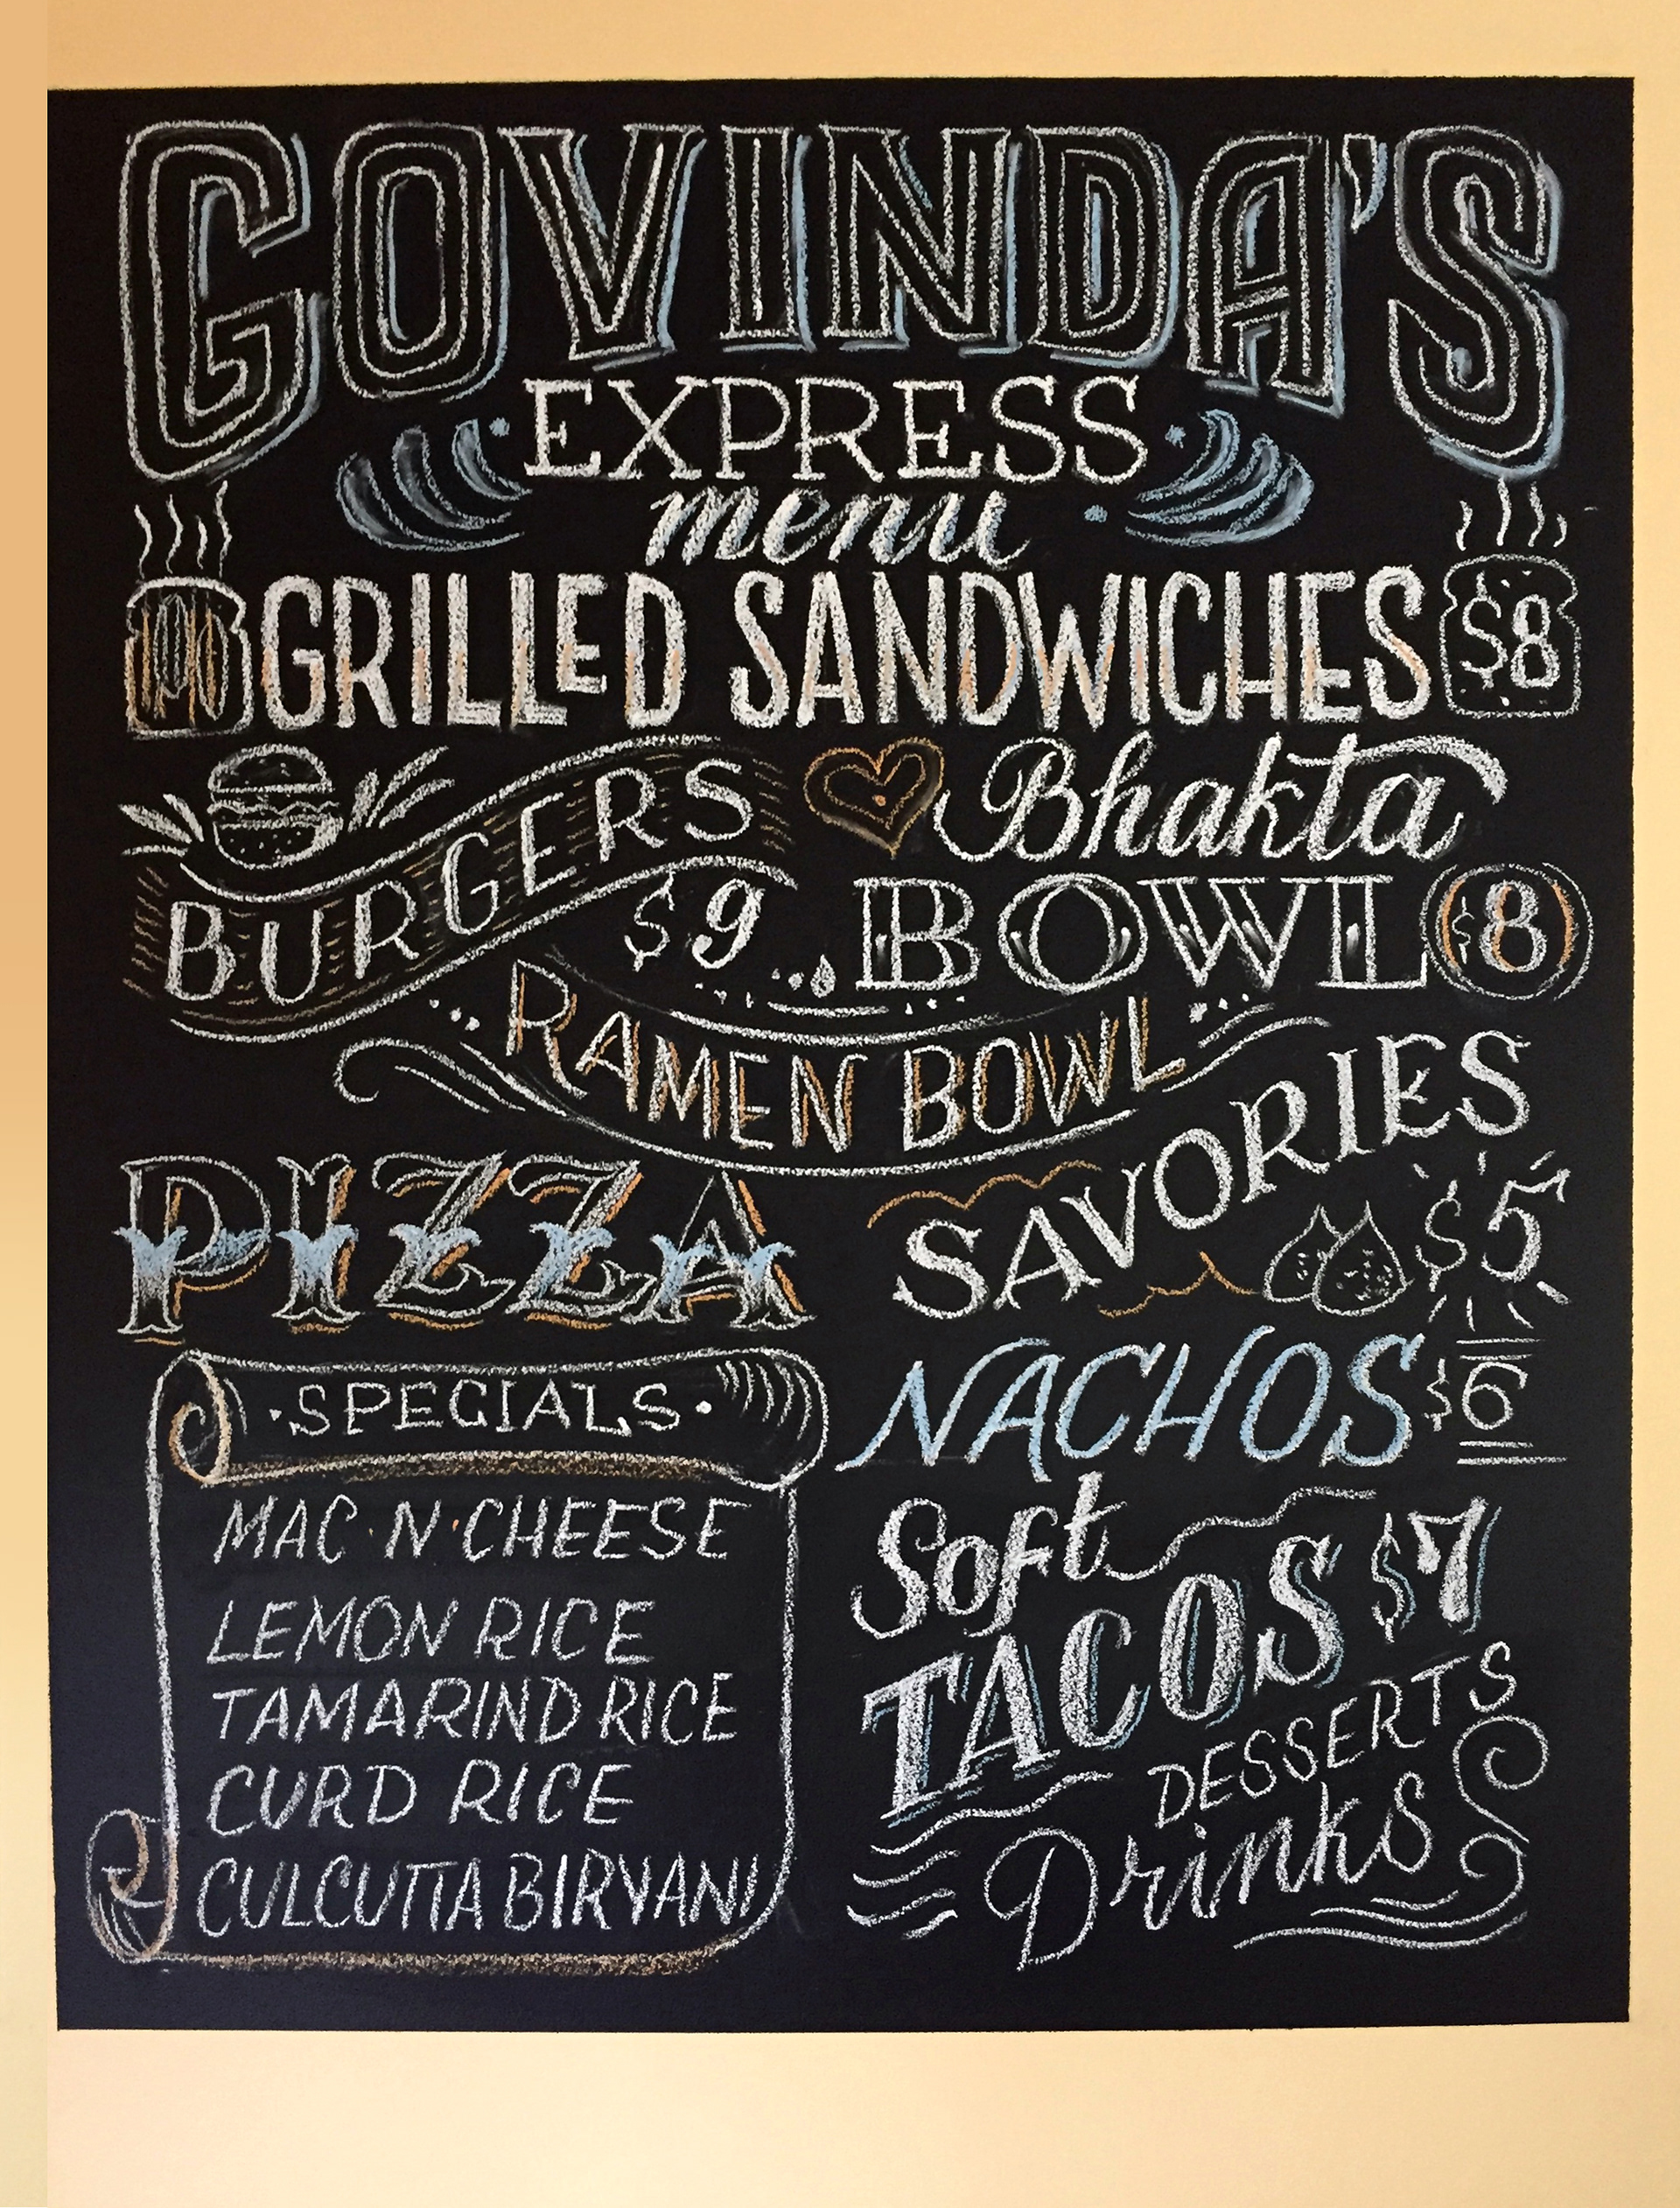 GOVINDA'S
EXPRESS
menu
GRILLED SANDWICHES $8
BURGERS $9
Bhakta
BOWL $8
RAMEN BOWL
PIZZA
SAVORIES $5
SPECIALS
MAC·N·CHEESE
LEMON RICE
TAMARIND RICE
CURD RICE
CULCUTTA BIRYANI
NACHOS $6
Soft
TACOS $7
DESSERTS
Drinks